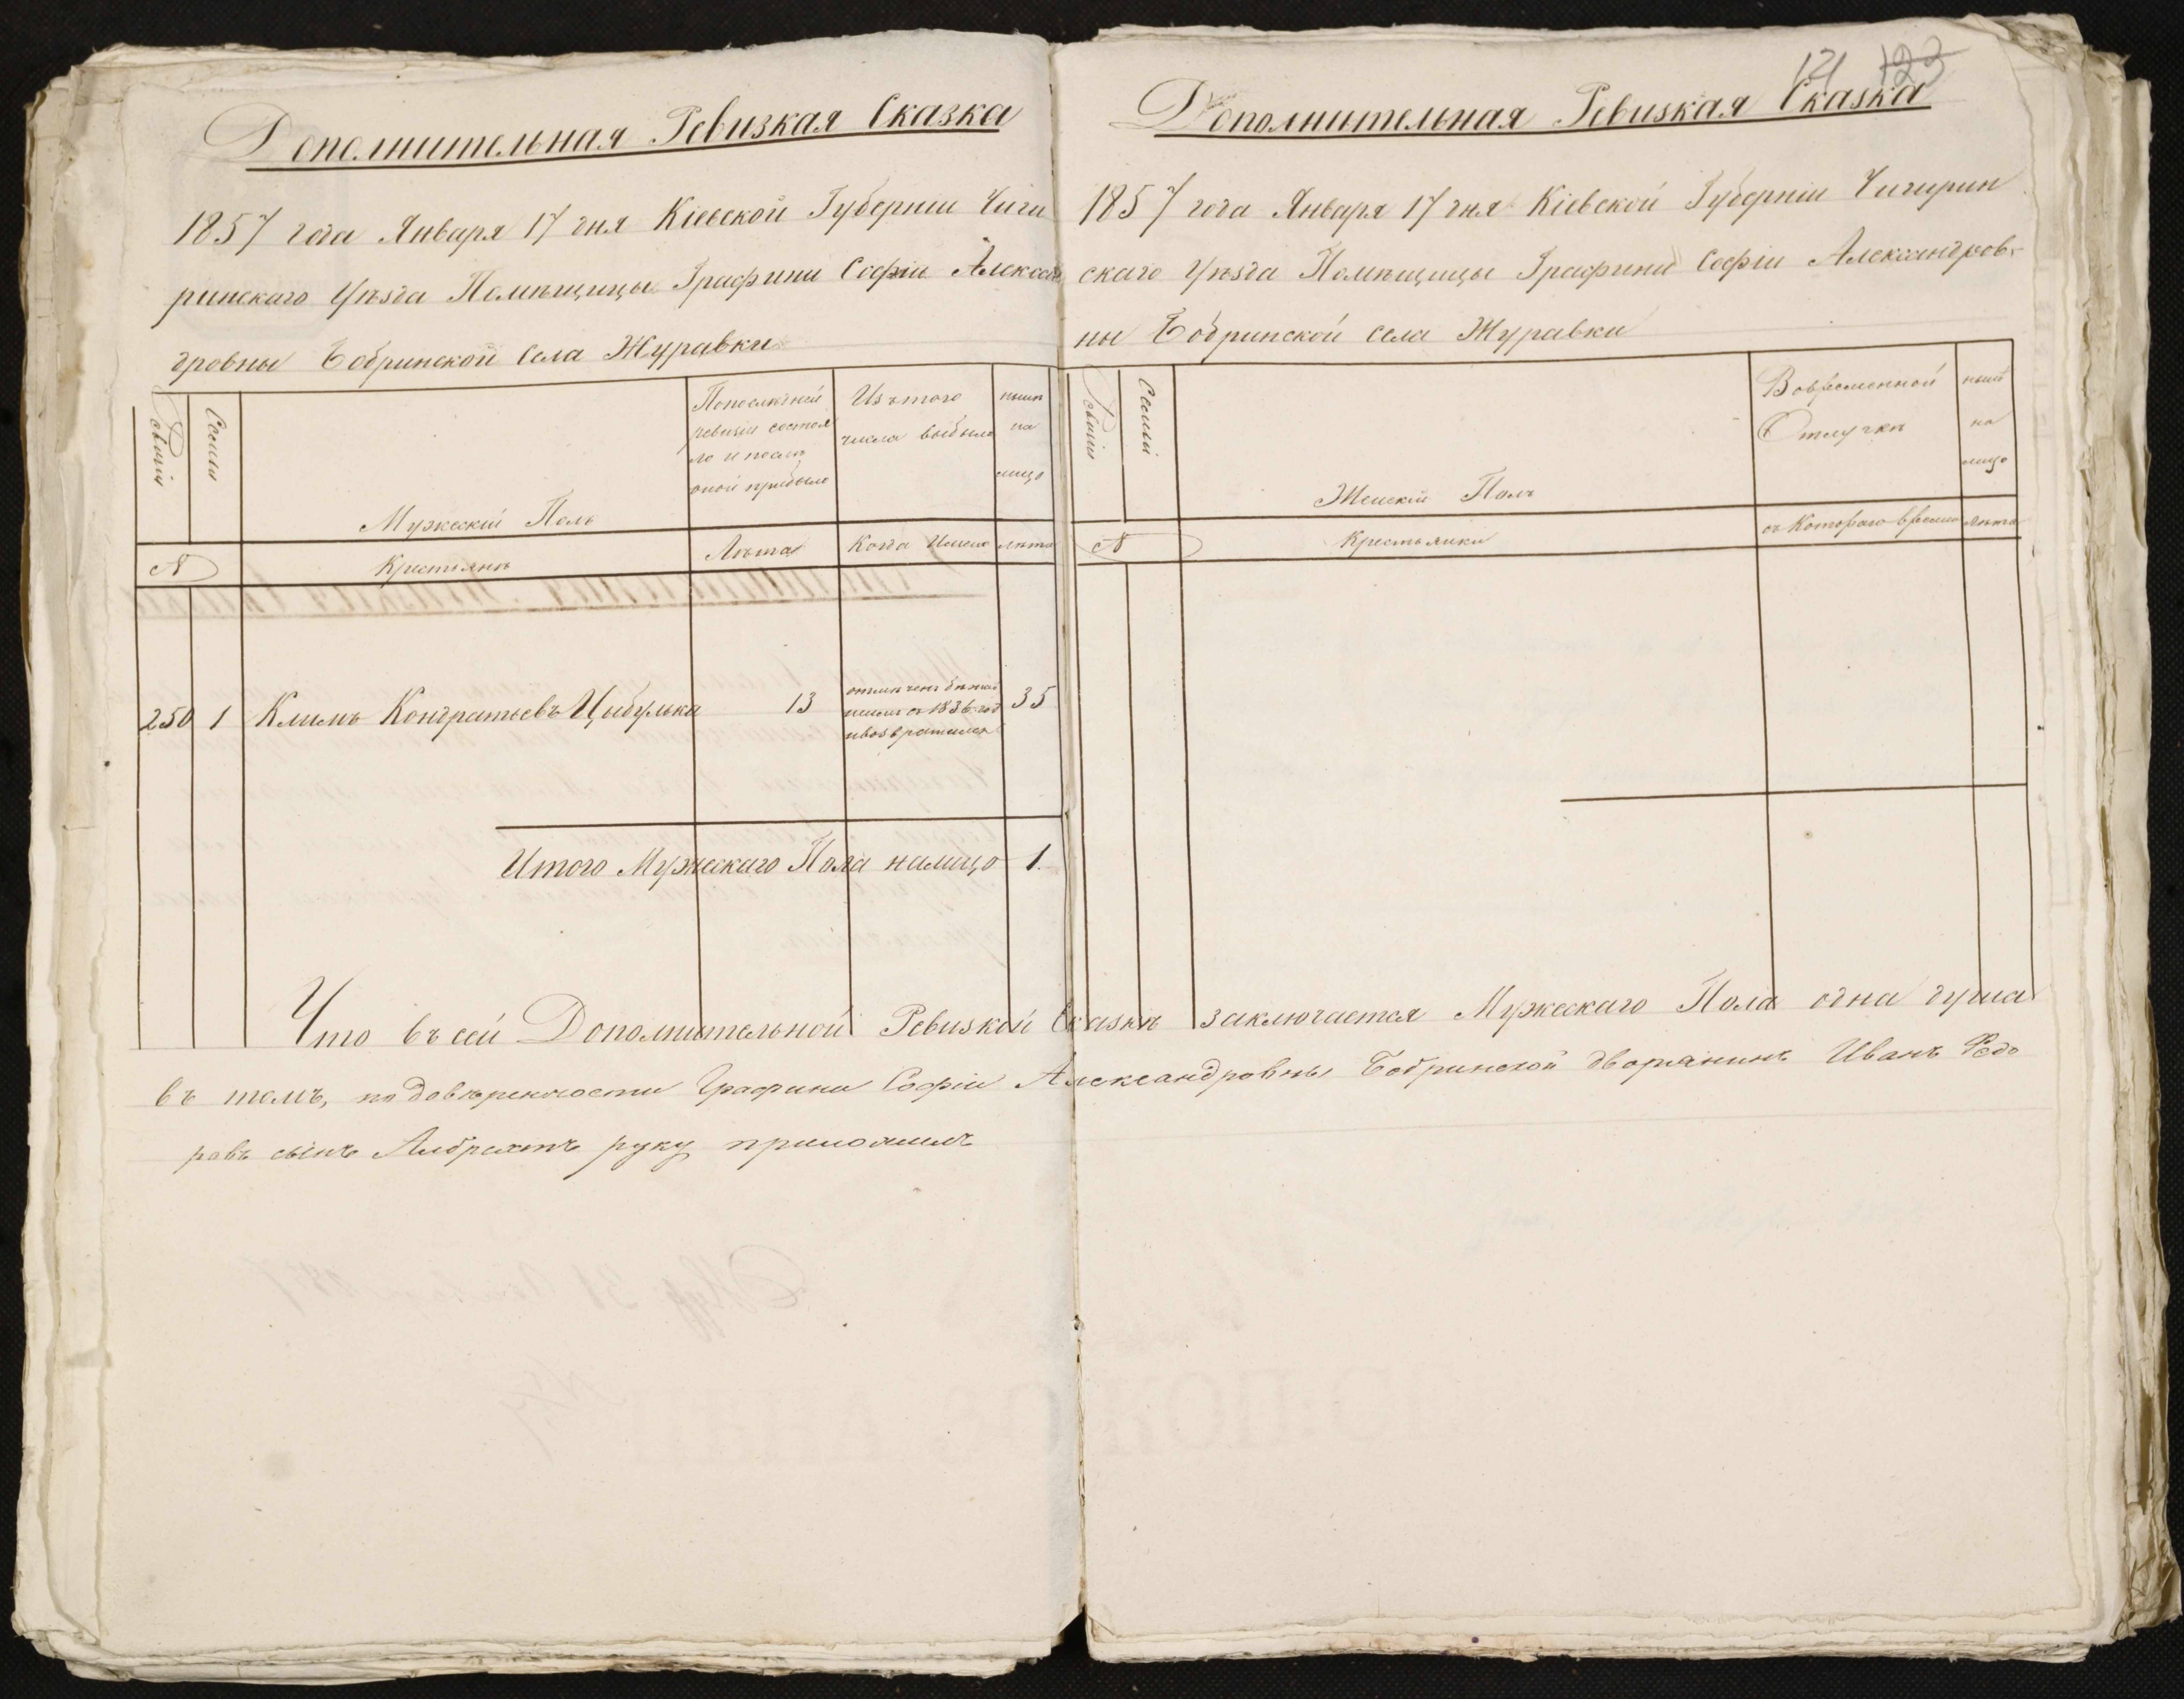 Дополнительная Ревизкая Сказка
1857 года Января 17 дня Кіевской Губерніи Чиги
ринскаго Уѣзда Помѣщицы Графини Софіи Алексан
дровны Бобринской села Журавки
Ревизіи
Семьи
Мужескій Полъ
По последней
ревизіи состоя
ло и послѣ
оной прибыло
Изъ того
числа выбыло
нынѣ
на
лицо
№
Крестьянъ
Лѣта
Когда Именно
лѣта
250
1
Климъ Кондратьевъ Цибулька
13
1836 год
и возвратился
35
Итого Мужескаго Пола налицо 1.
121 123
Дополнительная Ревизкая Сказка
1857 года Января 17 дня Кіевской Губерніи Чигирин
скаго Уѣзда Помѣщицы Графини Софіи Александров-
ны Бобринской села Журавки
Ревизіи
Семьи
Женскій Полъ
Во временной
Отлучкѣ
нынѣ
на
лицо
№
Крестьянки
съ Котораго времени
лѣта
Что въ сей Дополнительной Ревизкой Сказкѣ заключается Мужескаго Пола одна душа
въ томъ, по довѣренности Графини Софіи Александровны Бобринской дворянинъ Иванъ Федо
ровъ сынъ Албрехтъ руку приложилъ